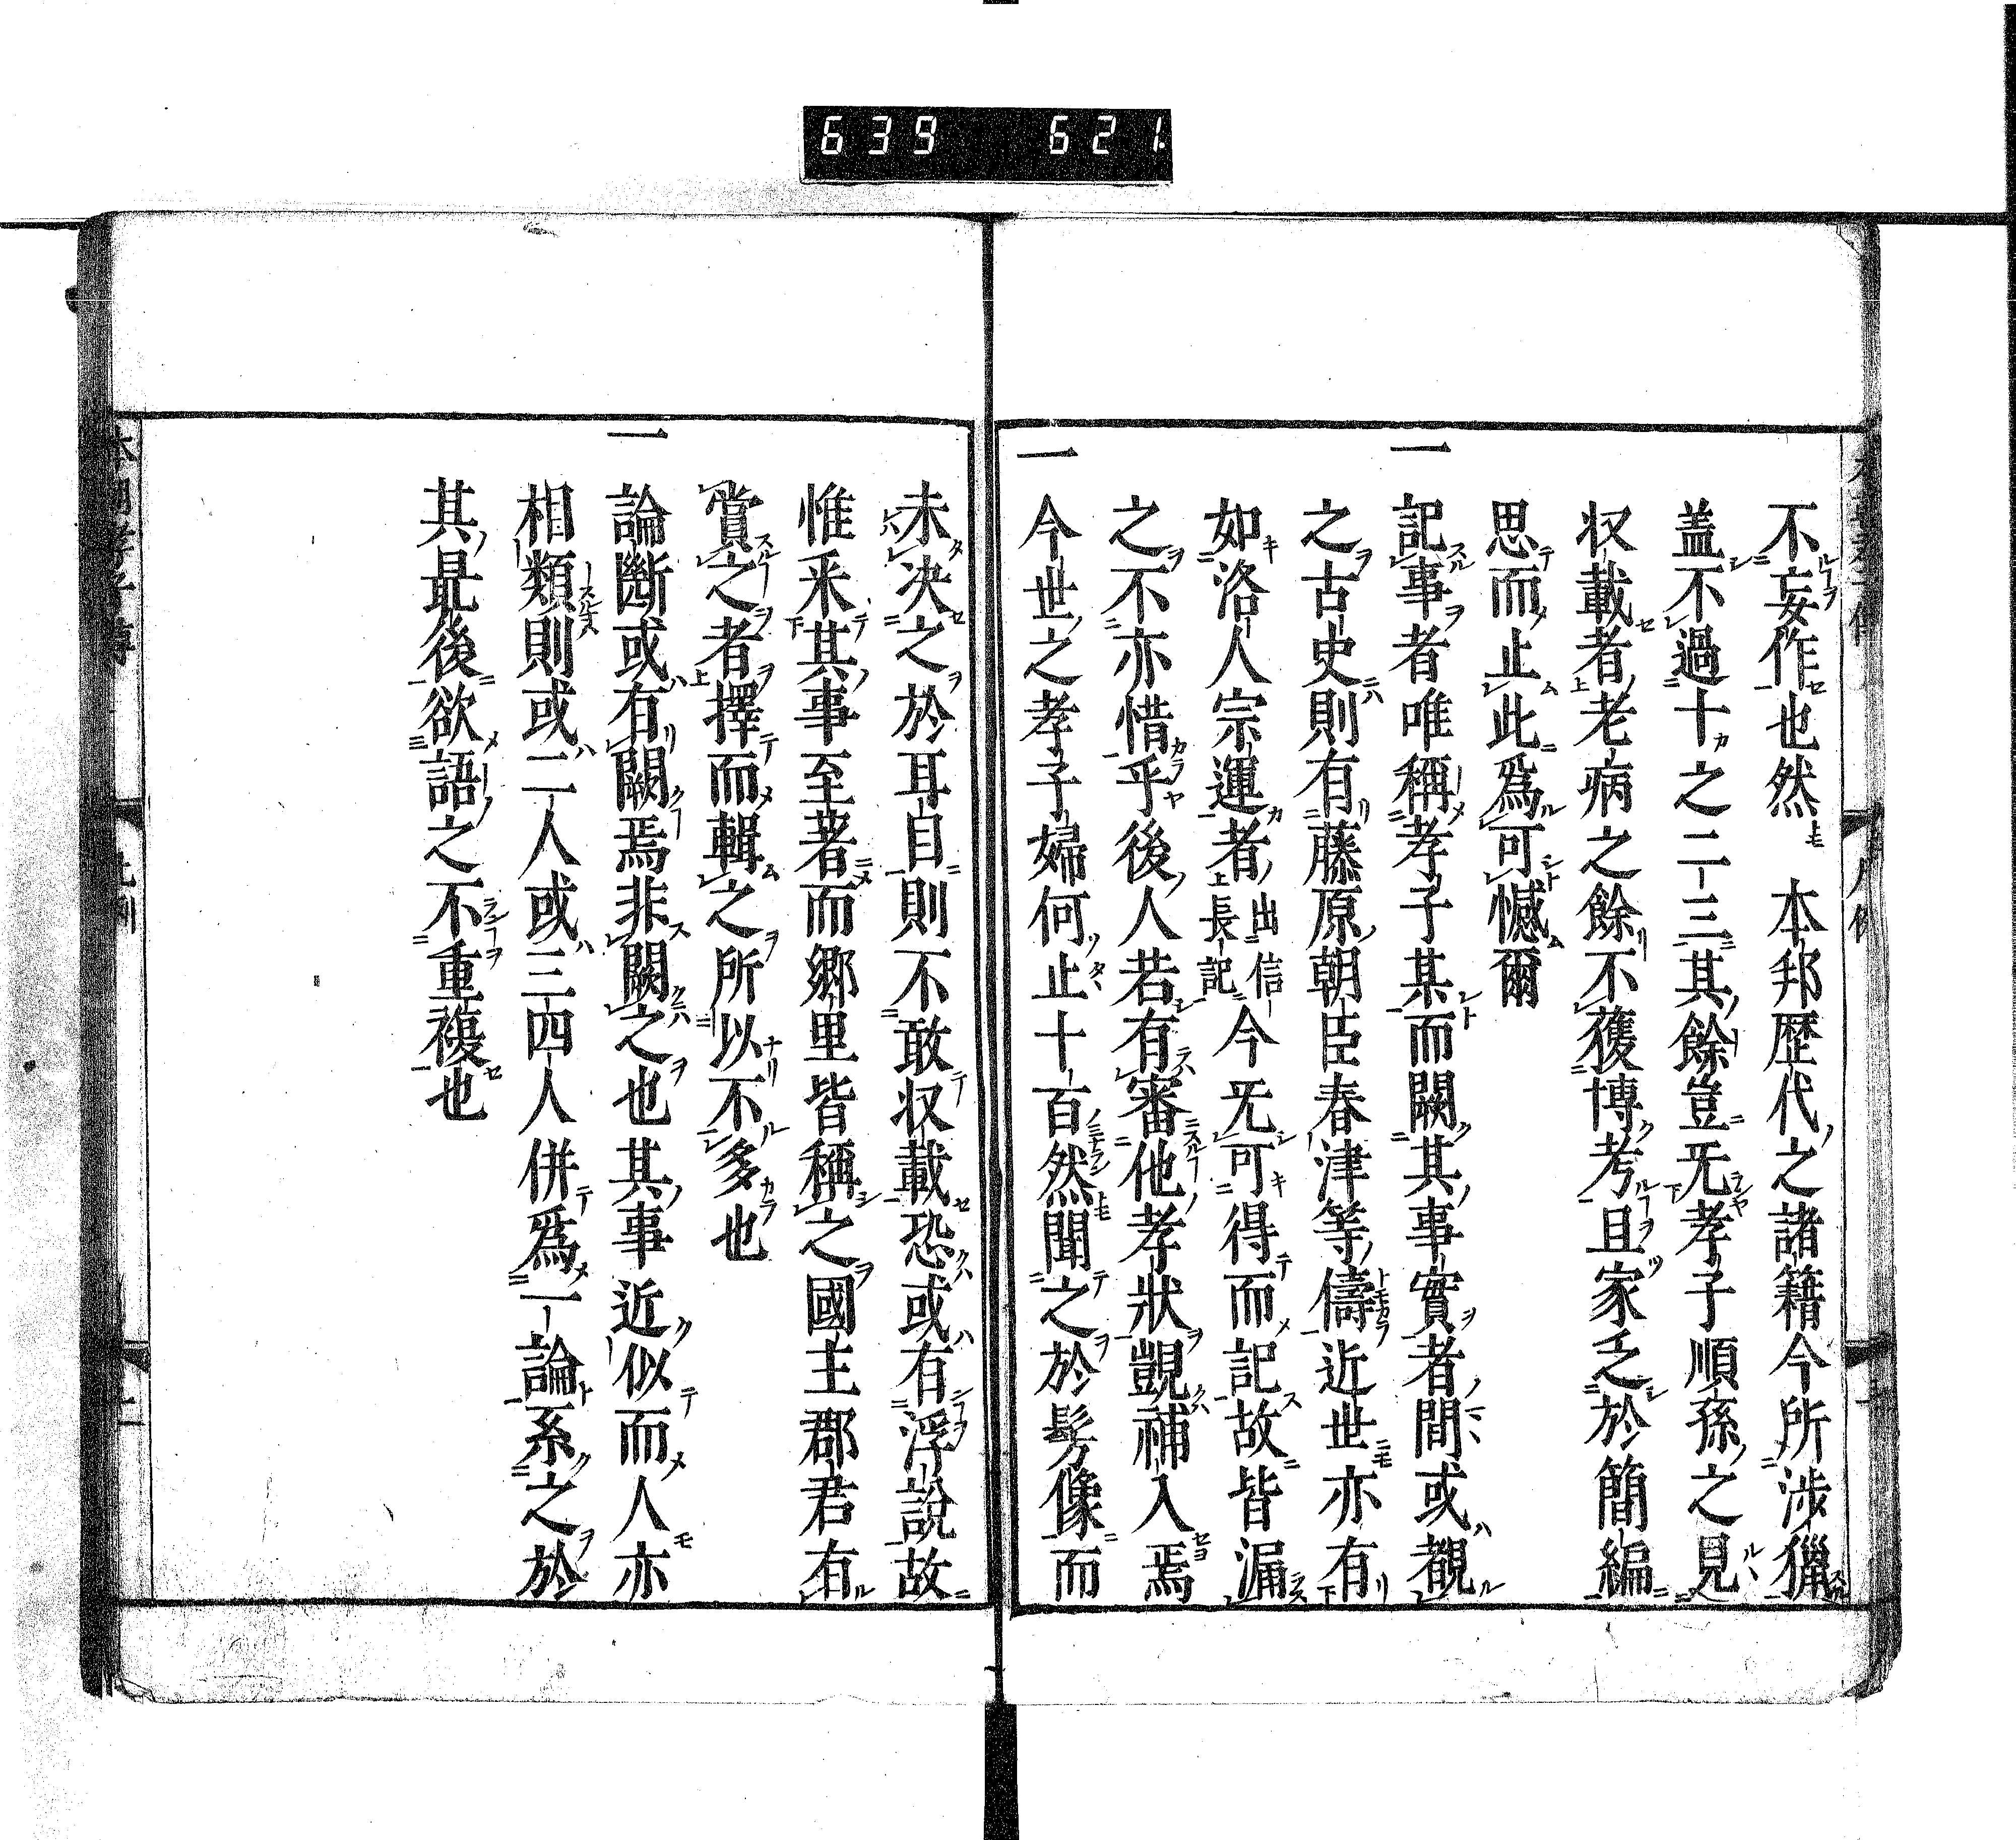 639 621
不妄作也然　本邦歴代之諸籍今所渉獵
盖不過十之二三其餘豈无孝子順孫之見
収載者老病之餘不獲博考且家乏於簡編
思而止此爲可憾爾
一記事者唯稱孝子某而闕其事實者間或覩
之古史則有藤原朝臣春津等儔近世亦有
如洛人宗運者出信長記今无可得而記故皆漏
之不亦惜乎後人若有審他孝狀覬補入焉
一今世之孝子婦何止十百然聞之於髣像而
未决之於耳目則不敢収載恐或有浮說故
惟釆其事至著而郷里皆稱之國主郡君有
賞之者擇而輯之所以不多也
一論斷或有闕焉非闕之也其事近似而人亦
相類則或二人或三四人併爲一論系之於
其最後欲語之不重複也